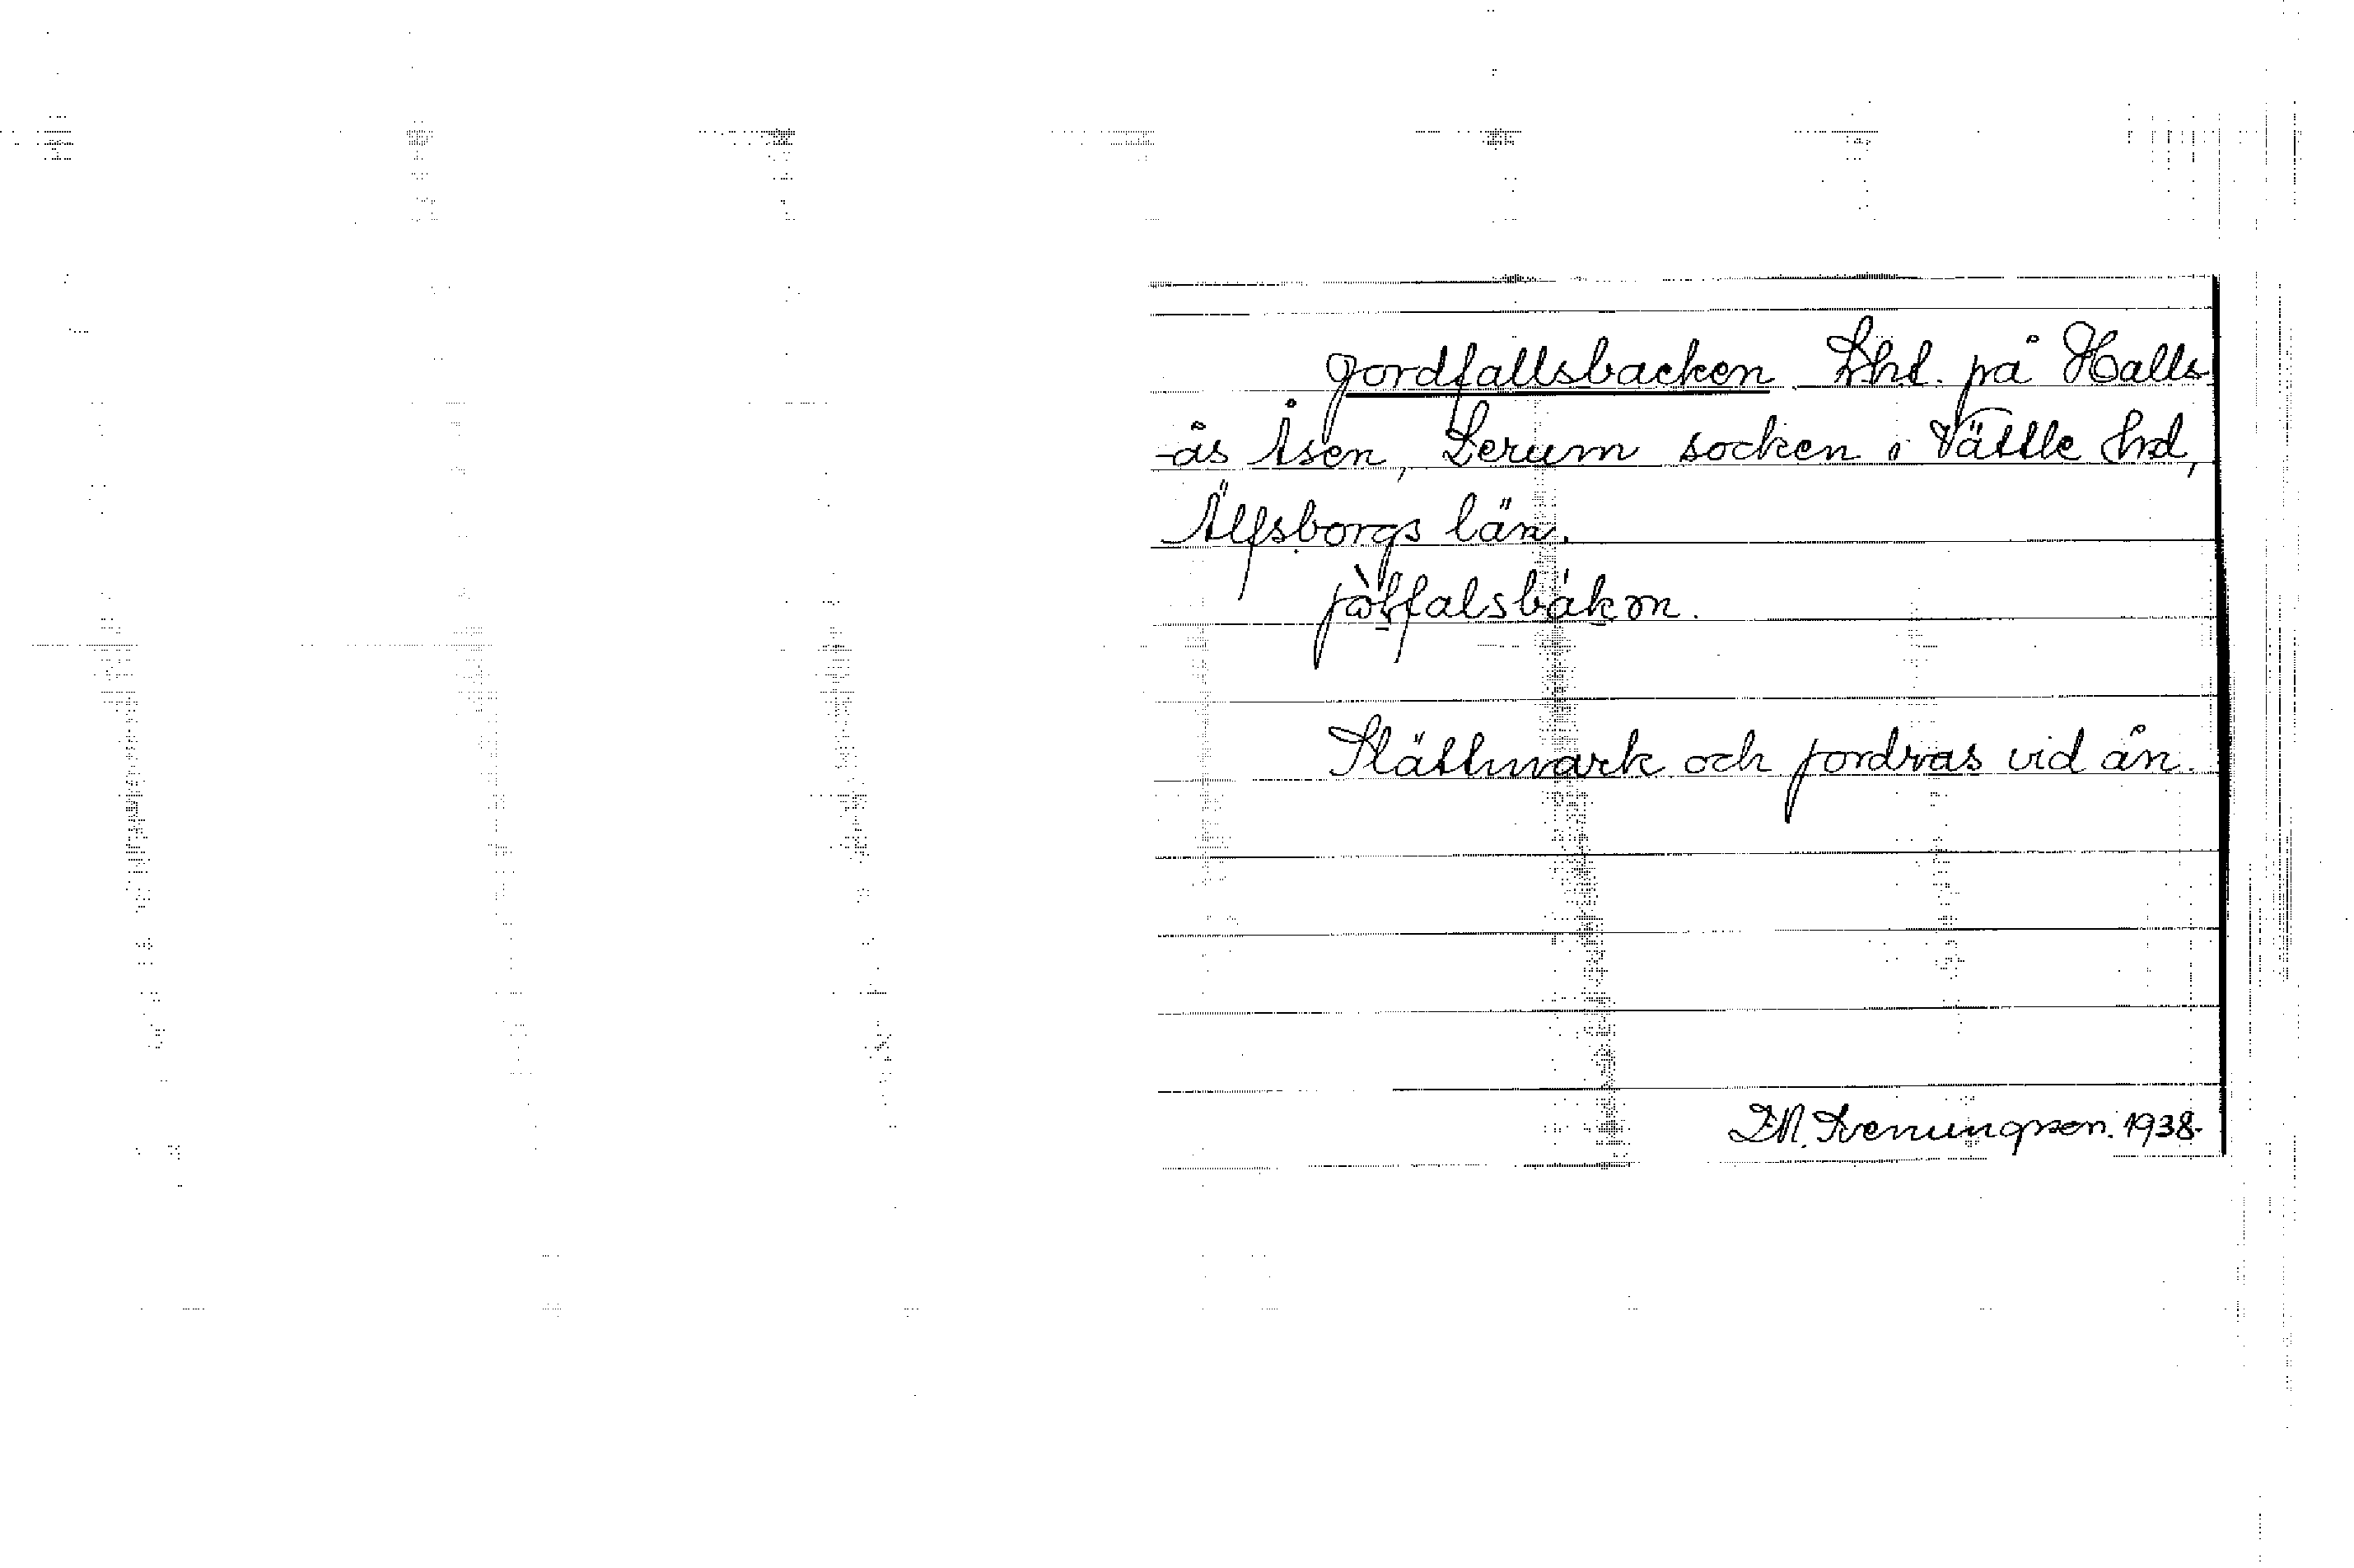 Jordfallsbacken. Lht. på Halls-
-ås Åsen, Lerum socken i Vättle hd,
Älfsborgs län.
jòffalsbákɷn.
Slåttmark och jordras vid ån.
1938.